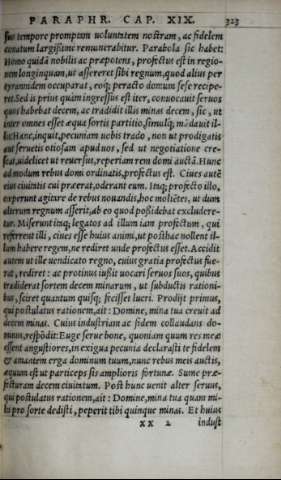 PARAPHR. CAP. XIX. 323
suo tempore promptam uoluntatem nostram, ac fidelem
conatum largissime remunerabitur. Parabola sic habet:
Homo quidã nobilis ac præpotens, profectus est in regio-
nem longinquam, ut assereret sibi regnum, quod alius per
tyrannidem occuparat, eoq; peracto domum sese recipe-
ret. Sed is prius quàm ingressus est iter, conuocauit seruos
quos habebat decem, ac tradidit illis minas decem, sic, ut
inter omnes esset æqua sortis partitio, simulq; mãdauit il-
lis: Hanc, inquit, pecuniam uobis trado, non ut prodigatis
aut seruetis otiosam apud uos, sed ut negotiatione cre-
scat, uidelicet ut reuersus, reperiam rem domi auctã. Hunc
ad modum rebus domi ordinatis, profectus est. Ciues autẽ
eius ciuitatis cui præerat, oderant eum. Itaq; profecto illo,
cœperunt agitare de rebus nouandis, hoc moliẽtes, ut dum
alterum regnum asserit, ab eo quod possidebat excludere-
tur. Miserunt itaq; legatos ad illum iam profectum, qui
referrent illi, ciues esse huius animi, ut posthac nollent il-
lum habere regem, ne rediret unde profectus esset. Accidit
autem ut ille uendicato regno, cuius gratia profectus fue-
rat, rediret: ac protinus iussit uocari seruos suos, quibus
tradiderat sortem decem minarum, ut subductis rationi-
bus, sciret quantum quisq; fecisset lucri. Prodijt primus,
qui postulatus rationem, ait: Domine, mina tua creuit ad
decem minas. Cuius industriam ac fidem collaudans do-
minus, respõdit: Euge serue bone, quoniam quum res meæ
essent angustiores, in exigua pecunia declarasti te fidelem
& amantem erga dominum tuum, nunc rebus meis auctis,
æquum est ut particeps sis amplioris fortunæ. Sume præ-
fecturam decem ciuitatum. Post hunc uenit alter seruus,
qui postulatus rationem, ait: Domine, mina tua quam mi-
hi pro sorte dedisti, peperit tibi quinque minas. Et huius
XX 2 indust